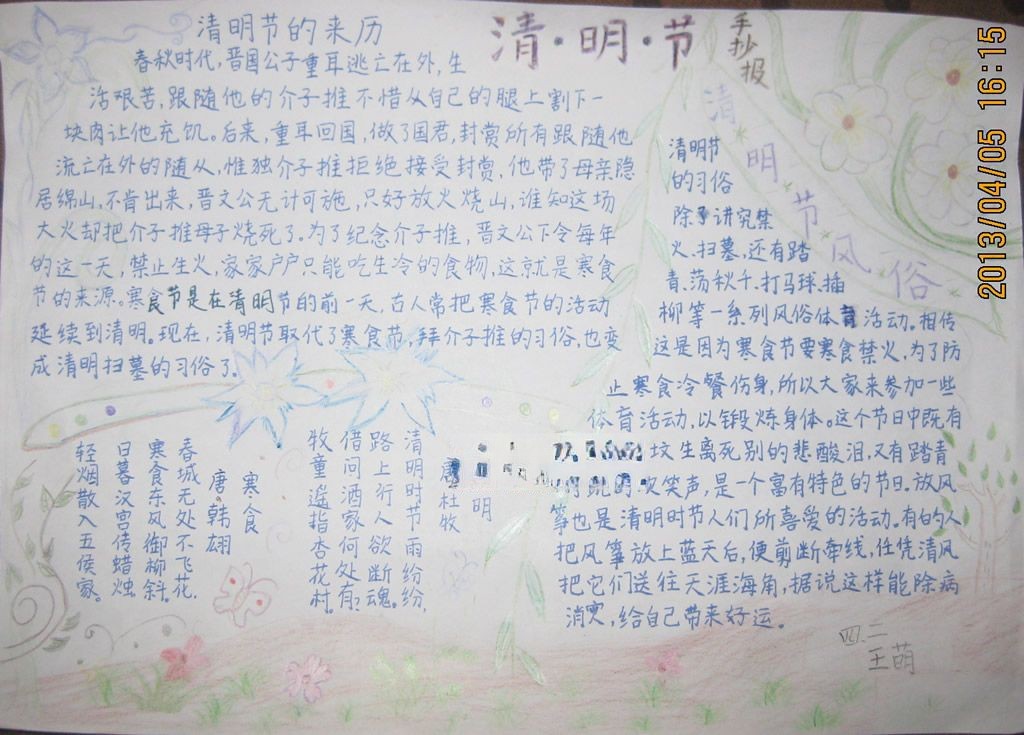 清明节的来历
春秋时代,晋国公子重耳逃亡在外,生
活艰苦,跟随他的介子推不惜从自己的腿上割下一
块肉让他充饥。后来,重耳回国,做了国君,封赏所有跟随他
流亡在外的随从,惟独介子推拒绝接受封赏,他带了母亲隐
居绵山,不肯出来,晋文公无计可施,只好放火烧山,谁知这场
大火却把介子推母子烧死了。为了纪念介子推,晋文公下令每年
的这一天,禁止生火,家家户户只能吃生冷的食物,这就是寒食
节的来源。寒食节是在清明节的前一天,古人常把寒食节的活动
延续到清明。现在,清明节取代了寒食节,拜介子推的习俗,也变
成清明扫墓的习俗了。
清·明·节
手抄报
清明节风俗
清明节
的习俗
除了讲究禁
火、扫墓,还有踏
青、荡秋千、打马球、插
柳等一系列风俗体育活动。相传
这是因为寒食节要寒食禁火,为了防
止寒食冷餐伤身,所以大家来参加一些
体育活动,以锻炼身体。这个节日中既有
坟生离死别的悲酸泪,又有踏青
笑声,是一个富有特色的节日。放风
筝也是清明时节人们所喜爱的活动。有的人
把风筝放上蓝天后,便剪断牵线,任凭清风
把它们送往天涯海角,据说这样能除病
消灾,给自己带来好运。
明
唐杜牧
清明时节雨纷纷,
路上行人欲断魂。
借问酒家何处有?
牧童遥指杏花村。
寒食
唐·韩翃
春城无处不飞花,
寒食东风御柳斜。
日暮汉宫传蜡烛,
轻烟散入五侯家。
四.二
王萌
2013/04/05 16:15